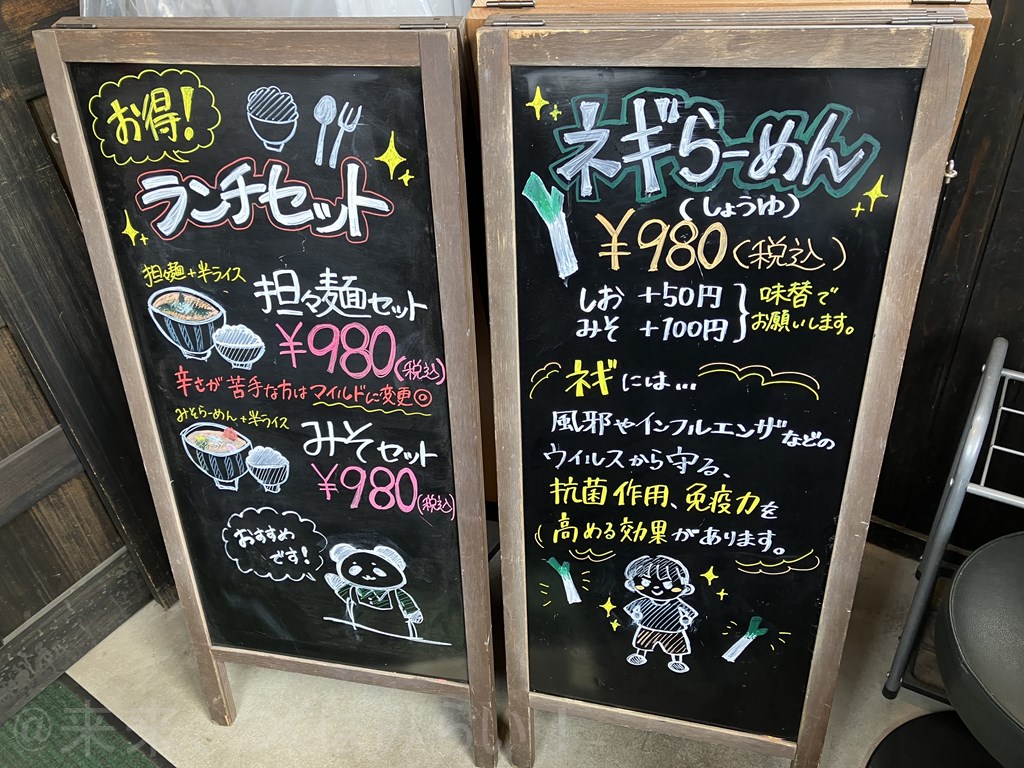 お得!
ランチセット
担々麺+半ライス
担々麺セット
¥980(税込)
辛さが苦手な方はマイルドに変更◎
みそらーめん+半ライス
みそセット
¥980(税込)
おすすめ
です!
ネギらーめん
(しょうゆ)
¥980(税込)
しお +50円
みそ +100円
味替で
お願いします。
ネギには…
風邪やインフルエンザなどの
ウイルスから守る、
抗菌作用、免疫力を
高める効果があります。